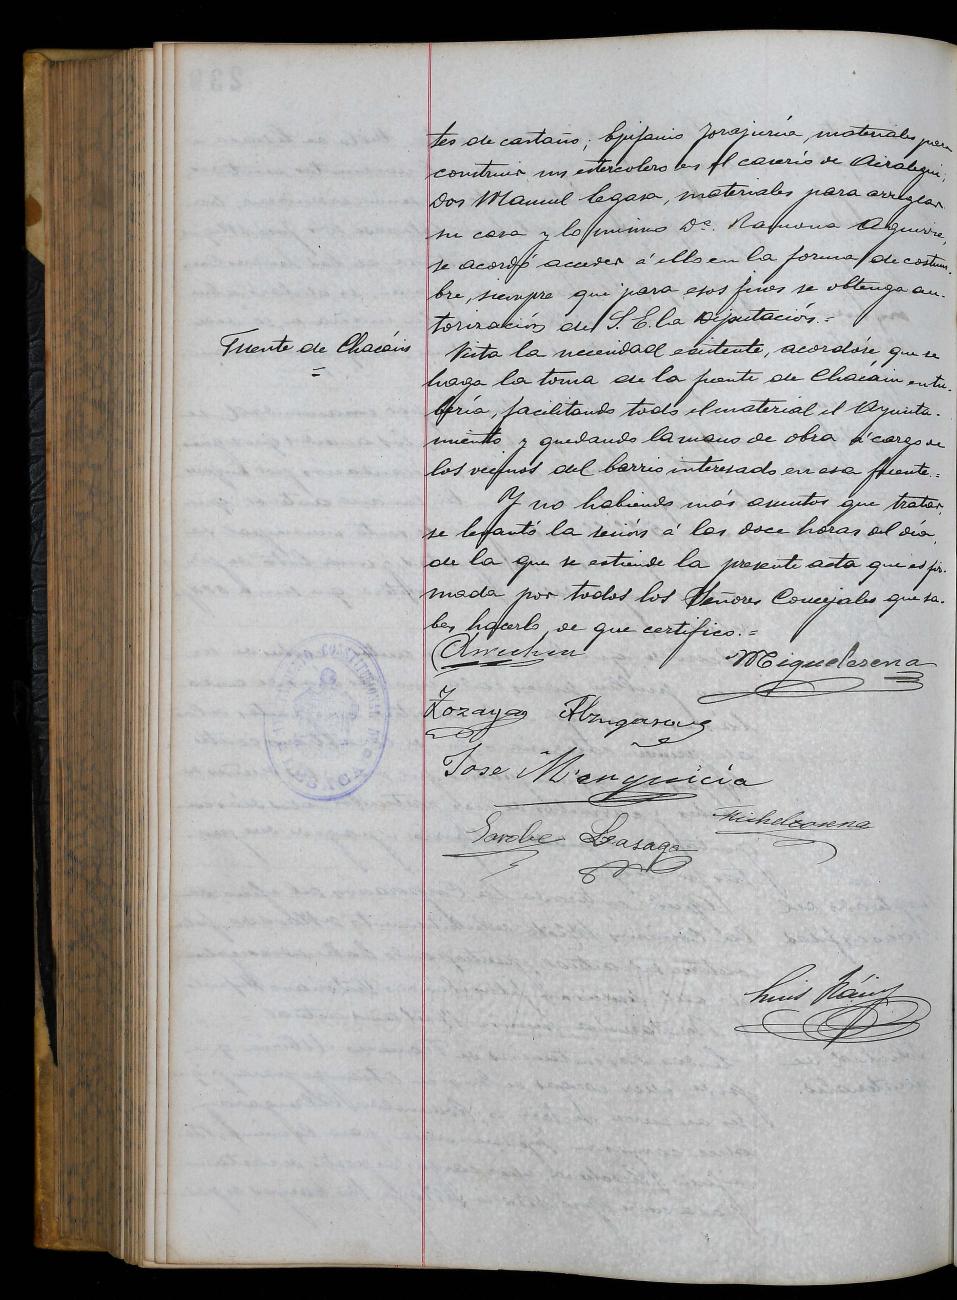 tes de castaño; Epifanio Jorajuría, materiales para
construir un estercolero en el caserío de
Don Manuel Legasa, materiales para arreglar
su casa y lo mismo Dª. Ramona Aguirre,
se acordó acceder á ello en la forma de costum-
bre, siempre que para esos fines se obtenga au-
torización de S. E. la Diputación.=
Fuente de Chacáin
=
Vista la necesidad existente, acordóse que se
haga la toma de la fuente de Chacáin en tu-
bería, facilitando todo el material el Ayunta-
miento y quedando la mano de obra á cargo de
los vecinos del barrio interesado en esa fuente.=
Y no habiendo más asuntos que tratar,
se levantó la sesión á las doce horas del día,
de la que se extiende la presente acta que es fir-
mada por todos los Señores Concejales que sa-
ben hacerlo, de que certifico.=
Miquelarena
Zozaya
Jose Menquicia
Lasaga
Michelarena
Luis